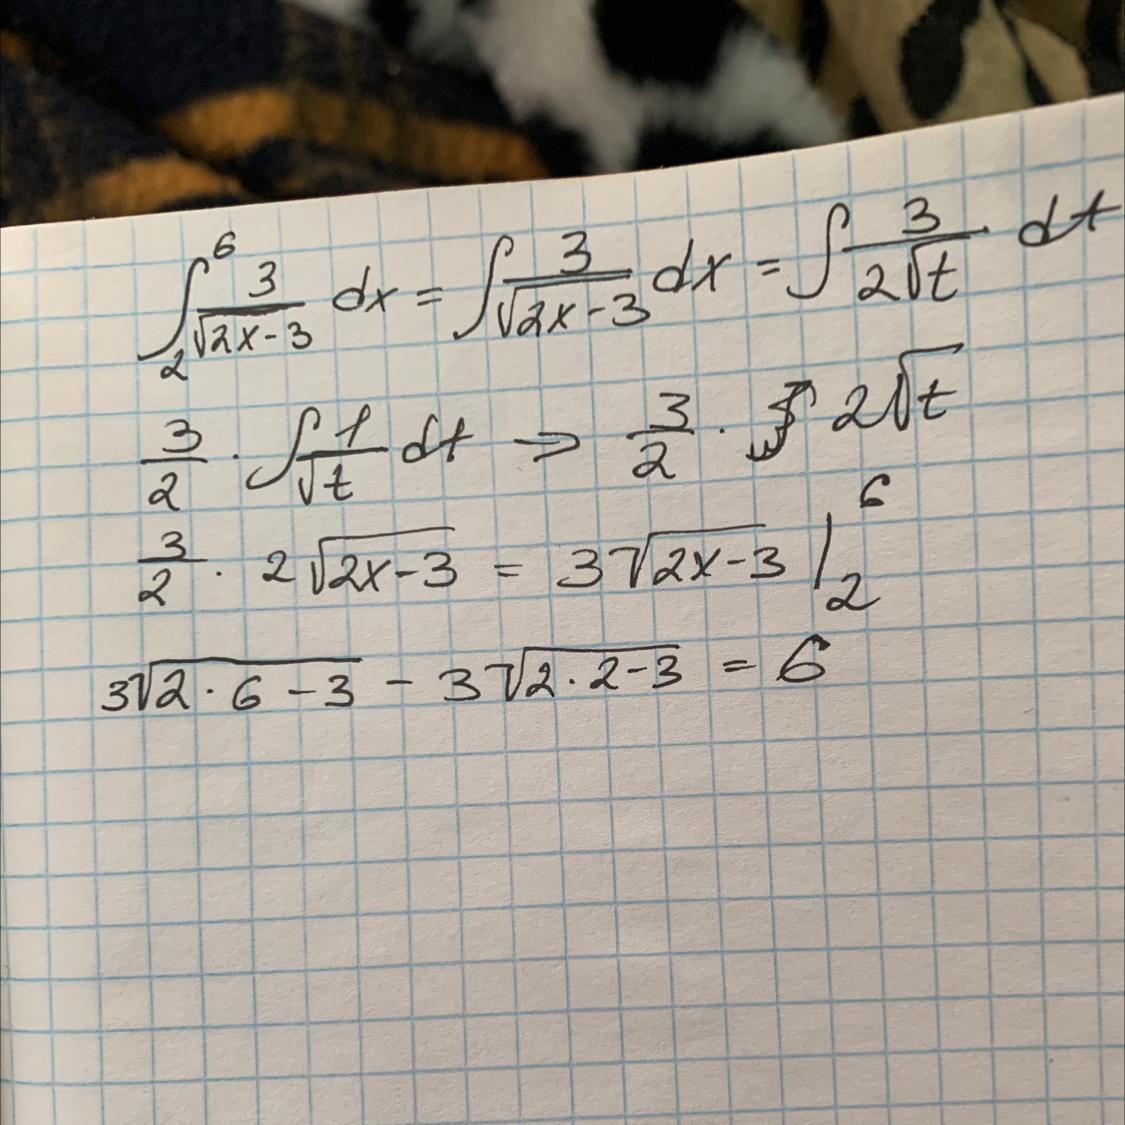 ∫₂⁶ 3/√(2x-3) dx = ∫ 3/√(2x-3) dx = ∫ 3/(2√t) · dt
3/2 · ∫ 1/√t dt => 3/2 · 2√t
3/2 · 2√(2x-3) = 3√(2x-3) |₂⁶
3√(2·6-3) - 3√(2·2-3) = 6